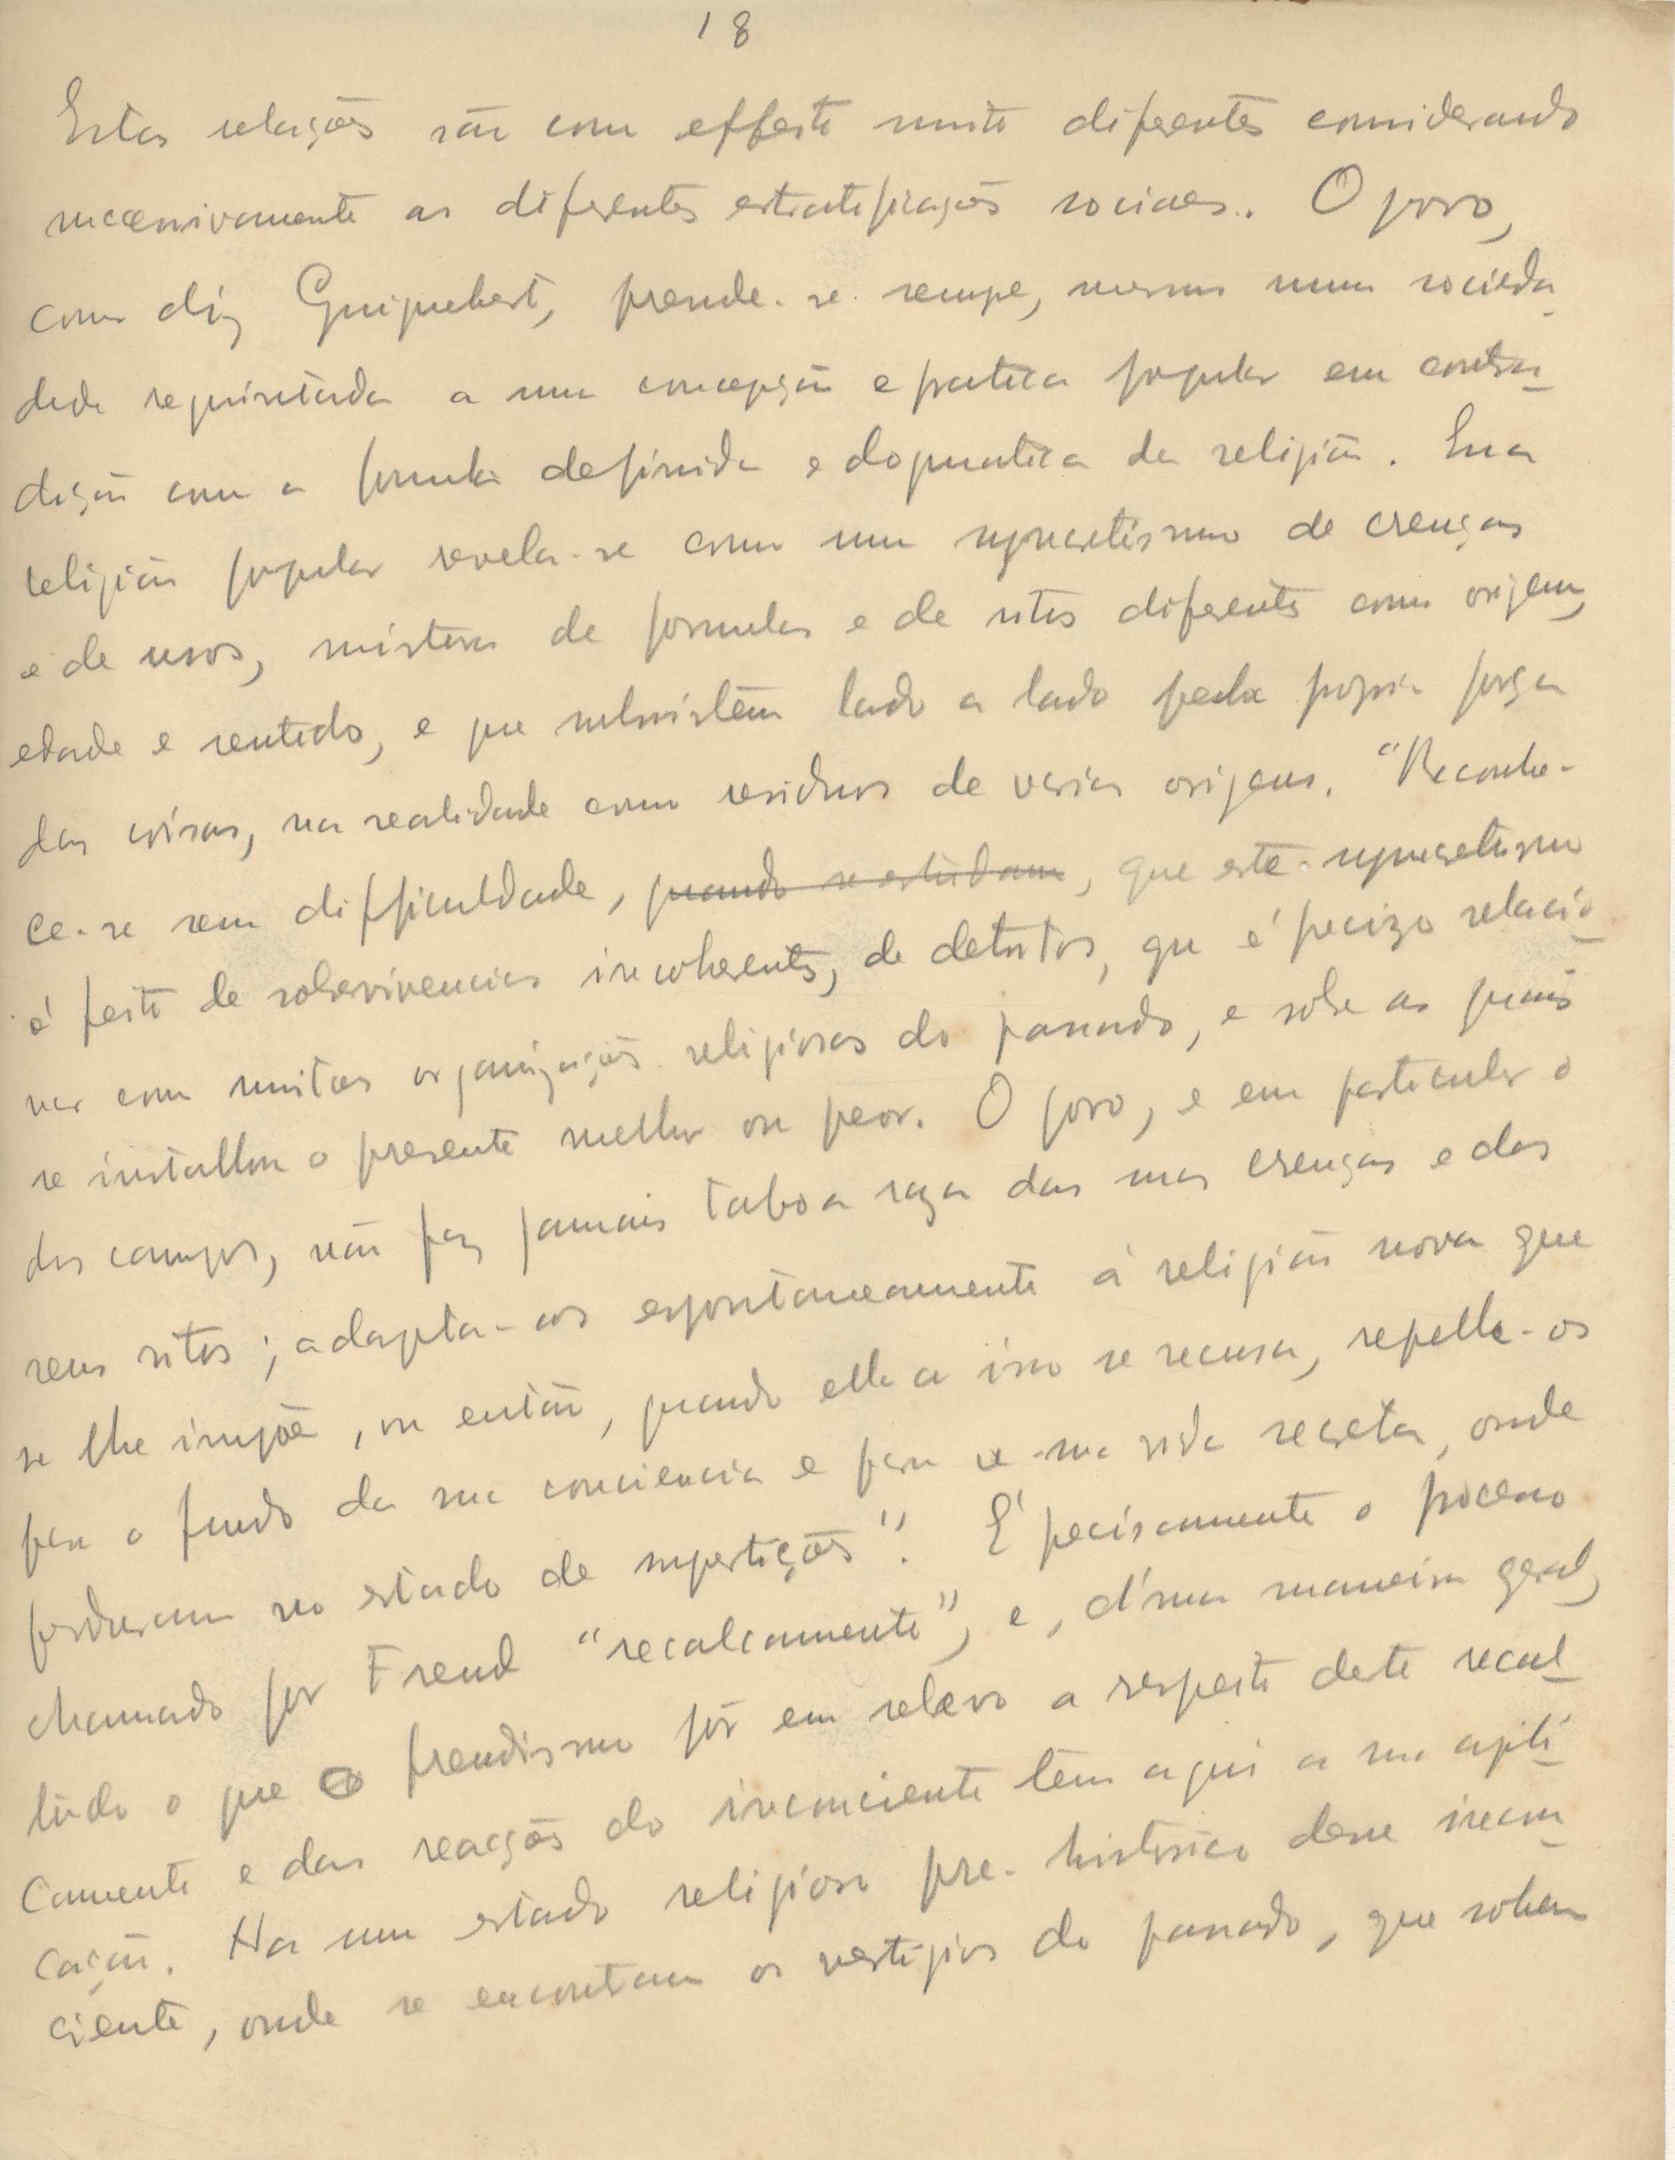 18
Estas relações são com effeito muito diferentes considerando
successivamente as diferentes estratificações sociaes. O povo,
como diz Guignebert, prende-se sempre, mesmo numa socieda-
dade requintada a uma concepção e pratica popular em contra-
dição com a formula definida e dogmatica da religião. Sua
religião popular revela-se como um syncretismo de crenças
e de usos, mistura de formulas e de ritos diferentes como origem,
edade e sentido, e que subsistem lado a lado pela propria força
das coisas, na realidade como residuos de varias origens. "Reconhe-
ce-se sem difficuldade, quando se estudam, que este syncretismo
é feito de sobrevivencias incoherentes, de detritos, que é precizo relacio-
nar com muitas organizações religiosas do passado, e sobre as quais
se installou o presente melhor ou peor. O povo, e em particular o
dos campos, não faz jamais taboa raza das suas crenças e dos
seus ritos; adapta-os espontaneamente á religião nova que
se lhe impõe, ou então, quando ella a isso se recusa, repelle-os
para o fundo da sua conciencia e para a sua vida secreta, onde
perduram no estado de superstições". É precisamente o processo
chamado por Freud "recalcamento", e, d'uma maneira geral,
tudo o que o freudismo pôs em relevo a respeito deste recal-
camento e das reacções do inconciente tem aqui a sua apli-
cação. Ha um estado religioso pre-historico desse incon-
ciente, onde se encontram os vestigios do passado, que sobem